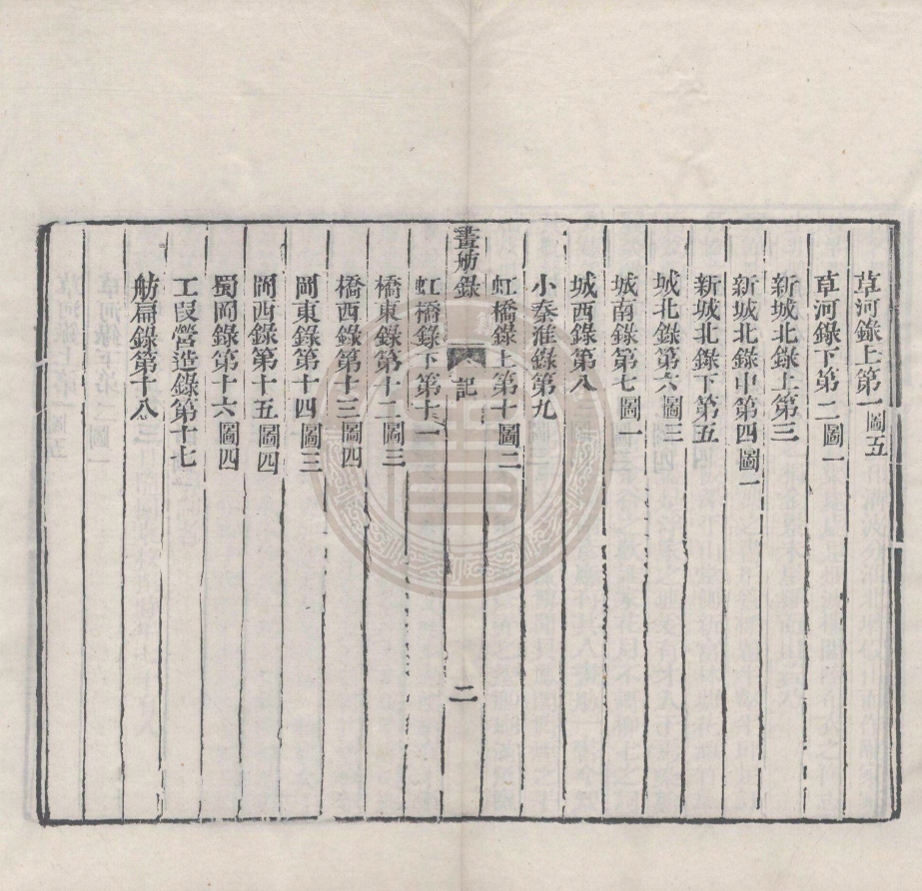 草河錄上第一圖五
草河錄下第二圖一
新城北錄上第三
新城北錄中第四圖一
新城北錄下第五
城北錄第六圖三
城南錄第七圖一
城西錄第八
小秦淮錄第九
虹橋錄上第十圖二
畫舫錄 記 二
虹橋錄下第十一
橋東錄第十二圖三
橋西錄第十三圖四
岡東錄第十四圖三
岡西錄第十五圖四
蜀岡錄第十六圖四
工段營造錄第十七
舫扁錄第十八